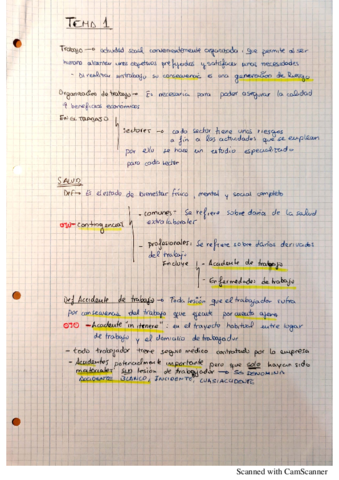 TEMA 1
Trabajo → actividad social convenientemente organizada, que permite al ser
humano alcanzar unos objetivos prefijados y satisfacer unas necesidades
- al realizar un trabajo su consecuencia es una generación de Riesgo
Organización de trabajo → Es necesaria para poder asegurar la calidad
y beneficios económicos
EN EL TRABAJO
Sectores → cada sector tiene unos riesgos
a fin a las actividades que se emplean
por ello se hace un estudio especializado
para cada sector
SALUD
Def → El estado de bienestar físico, mental y social completo
- comunes - Se refiere sobre daños de la salud
extralaborales
Contingencias
- profesionales: Se refiere sobre daños derivados
del trabajo
Incluye - Accidente de trabajo
- Enfermedades de trabajo
Def Accidente de trabajo → Toda lesión que el trabajador sufra
por consecuencia del trabajo que ejecute por cuenta ajena
OJO - Accidente "in itinere": en el trayecto habitual entre lugar
de trabajo y el domicilio de trabajador
- todo trabajador tiene seguro médico contratado por la empresa
- Accidentes potencialmente importante pero que solo hayan sido
materiales sin lesión de trabajador → SE DENOMINA
ACCIDENTE BLANCO, INCIDENTE, CUASIACCIDENTE
Scanned with CamScanner